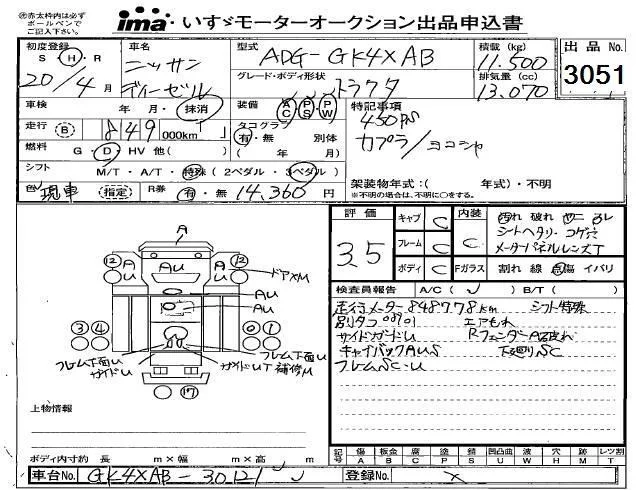 ㊟赤太枠内は必ず ボールペンで ご記入下さい。
ima いすゞモーターオークション出品申込書
初度登録 S・H・R 20/4月
車名 ニッサン ディーゼル
型式 ADG-GK4XAB
積載 (kg) 11.500
出品No. 3051
グレード・ボディ形状 トラクタ
排気量 (cc) 13.070
車検 年・月・抹消
装備 AC PS PW
特記事項 430PS カプラ/ヨコシャ
走行 B 849 000km
タコグラフ 有・無 別体 ( 年 / 月)
燃料 G・D・HV 他( )
シフト M/T・A/T・特殊 (2ペダル・3ペダル)
架装物年式:( 年式)・不明
※不明の場合は、不明に○をする。
現車 指定 R券 有・無 14,360円
評価 3.5
キャブ C 内装 C
フレーム C
ボディ C Fガラス 割れ 線 点傷 イバリ
汚れ 破れ
シートヘタリ・コゲ穴
メーターパネルレンズT
検査員報告 A/C( ) B/T( )
走行メーター848778km シフト特殊
別タコ エアもれ
サイドガードU RフェンダーA
キャイバックAUS 下廻りSC
フレムSC・U
A
12 A AU A 12 ドアスU
AU
AU
3 4 0 1
フレーム下面U ガイドU
フレーム下面U ガイドUT 補修U
17
上物情報
ボディ内寸約 長 m×幅 m×高 m
記号 傷A 板金B 腐C 塗P 錆S 凹凸曲U 波W 穴H 跡M 欠T レツ割T
車台No. GK4XAB-30121
登録No. ×